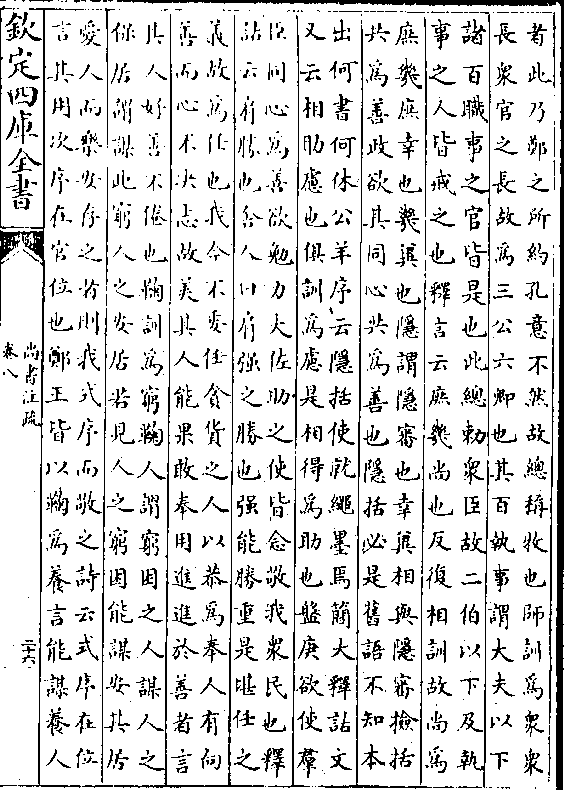 者此乃鄭之所約孔意不然故總稱牧也師訓為衆衆
長衆官之長故為三公六卿也其百執事謂大夫以下
諸百職事之官皆是也此總勅衆臣故二伯以下及執
事之人皆戒之也釋言云庶幾尚也反復相訓故尚為
庶幾庶幸也幾冀也隱謂隱審也幸冀相與隱審檢括
共為善政欲其同心共為善也隱括必是舊語不知本
出何書何休公羊序云隱括使就繩墨焉簡大釋詁文
又云相助慮也俱訓為慮是相得為助也盤庚欲使羣
臣同心為善欲勉力大佐助之使皆念敬我衆民也釋
詁云肩勝也舍人曰肩强之勝也强能勝重是堪任之
義故為任也我今不委任貪貨之人以恭為奉人有向
善而心不决志故美其人能果敢奉用進進於善者言
其人好善不倦也鞠訓為窮鞠人謂窮困之人謀人之
保居謂謀此窮人之安居若見人之窮困能謀安其居
愛人而樂安存之者則我式序而敬之詩云式序在位
言其用次序在官位也鄭王皆以鞠為養言能謀養人
欽定四庫全書
尚書注疏
卷八
二十六